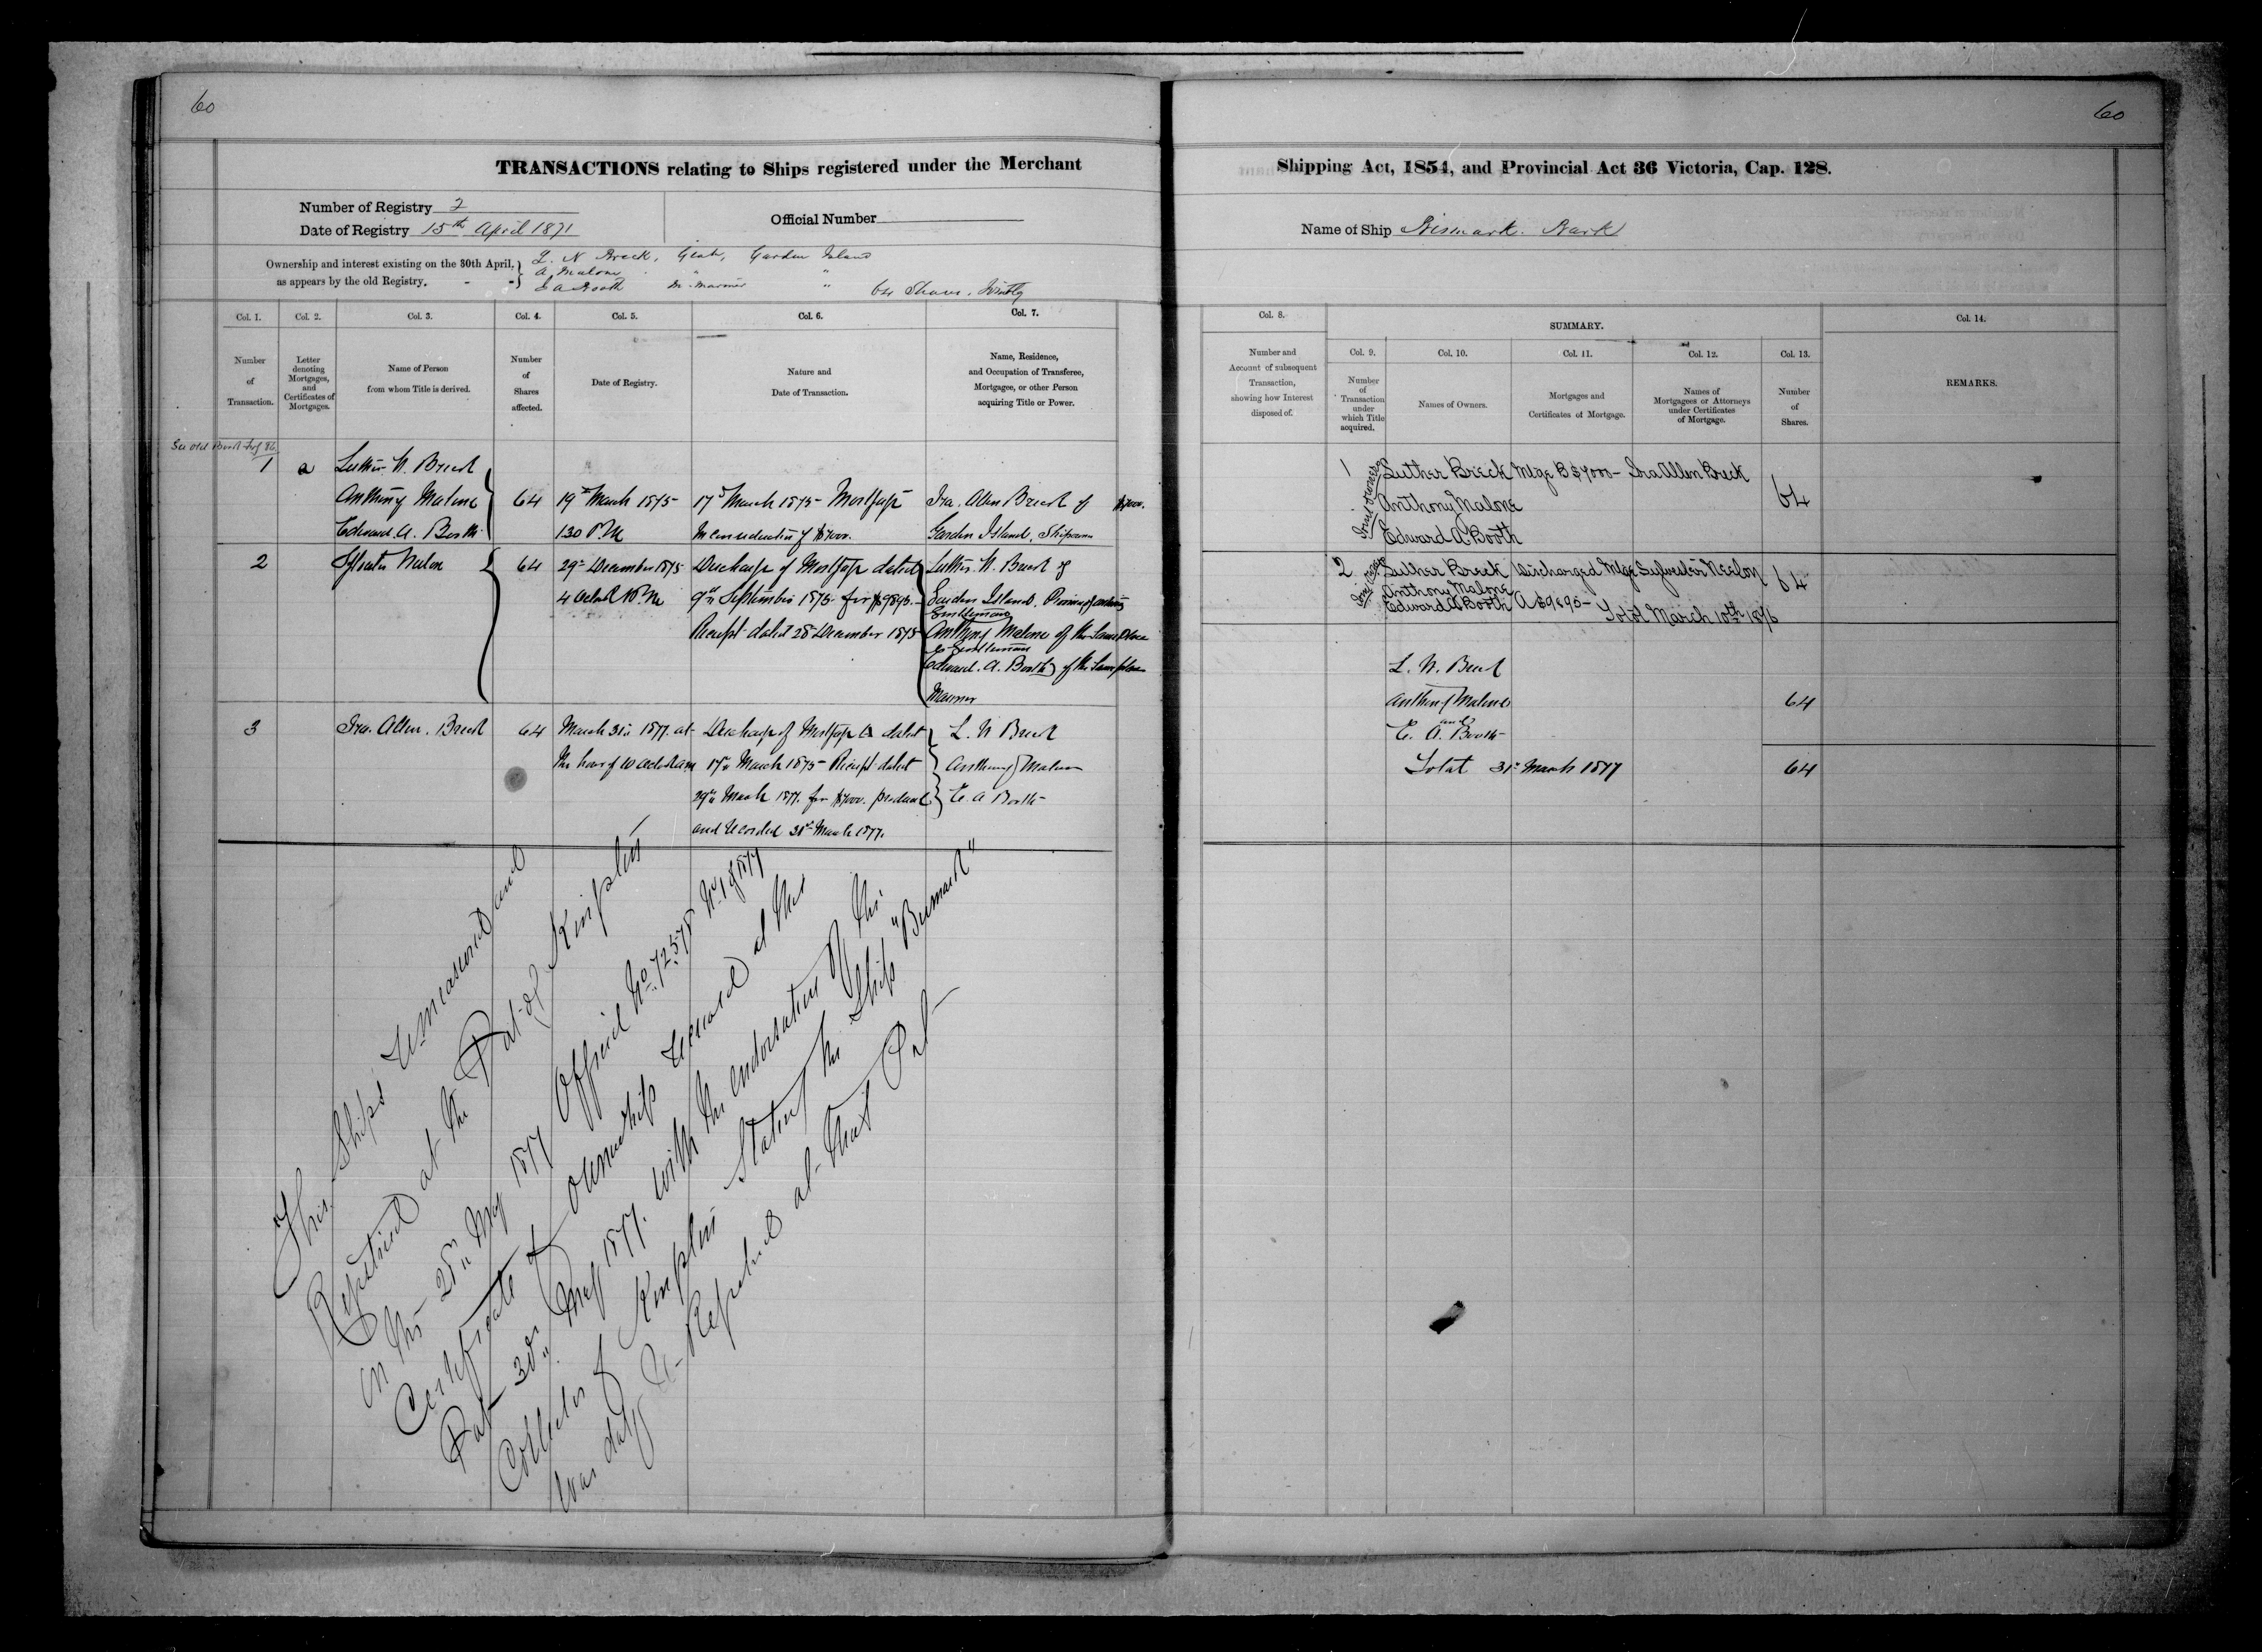 60
60
TRANSACTIONS relating to Ships registered under the Merchant
Shipping Act, 1854, and Provincial Act 36 Victoria, Cap. 128.
Number of Registry 2
Date of Registry 15th April 1871
Official Number
Name of Ship Bismark. Bark
Ownership and interest existing on the 30th April,
as appears by the old Registry.
L. N Breck, Gent, Garden Island
A. Malone " "
E A Booth M. Mariner "
64 Shares, Jointly
Col. 1.
Col. 2.
Col. 3.
Col. 4.
Col. 5.
Col. 6.
Col. 7.
Number
of
Transaction.
Letter
denoting
Mortgages,
and
Certificates of
Mortgages.
Name of Person
from whom Title is derived.
Number
of
Shares
affected.
Date of Registry.
Nature and
Date of Transaction.
Name, Residence,
and Occupation of Transferee,
Mortgagee, or other Person
acquiring Title or Power.
Col. 8.
Number and
Account of subsequent
Transaction,
showing how Interest
disposed of.
SUMMARY.
Col. 9.
Col. 10.
Col. 11.
Col. 12.
Col. 13.
Col. 14.
Number
of
Transaction
under
which Title
acquired.
Names of Owners.
Mortgages and
Certificates of Mortgage.
Names of
Mortgagees or Attorneys
under Certificates
of Mortgage.
Number
of
Shares.
REMARKS.
See Old Book
1
a
Luther N. Breck
Anthony Malone
Edward. A. Booth
64
19th March 1875
1.30 P.M
17th March 1875 Mortgage
In consideration of $7000.
Ira. Allen Breck of
Garden Island,
$7000.
2
64
29th December 1875
4 oclock P.M
Discharge of Mortgage dated
9th September 1875 for $9895.
Receipt dated 28th December 1875
Luther. N. Breck of
Garden Island. Province of Ontario
Gentleman
Anthony Malone of the Same Place
Gentleman
Edward. A. Booth of the Same place
Mariner
3
Ira. Allen. Breck
64
March 31st 1877. at
the hour of 10 oclock am
Discharge of Mortgage dated
17th March 1875 Receipt dated
29th March 1877. for $7000. produced
and recorded 31st March 1877.
L. N Breck
Anthony Malone
E. A Booth
This Ships remeasured and
Registered at the Port of Kingston
on the 28th May 1877 Official No. 72578 No. 1 of 1877
Certificate of Ownership received at this
Port 30th May 1877. with the endorsation of the
Collector of Kingston Stating the Ship "Bismark"
was duly Re-Registered at that Port
1
Joint owners
Luther Breck
Anthony Malone
Edward A. Booth
Mtge B $7000 -
Ira Allen Breck
64
2
Joint owners
Luther Breck
Anthony Malone
Edward A Booth
Discharged Mtge
A $9895 -
Sylvester Neelon
64
Total March 10th 1876
L. N. Breck
Anthony Malone
and
E. A. Booth
64
Total 31st March 1877
64